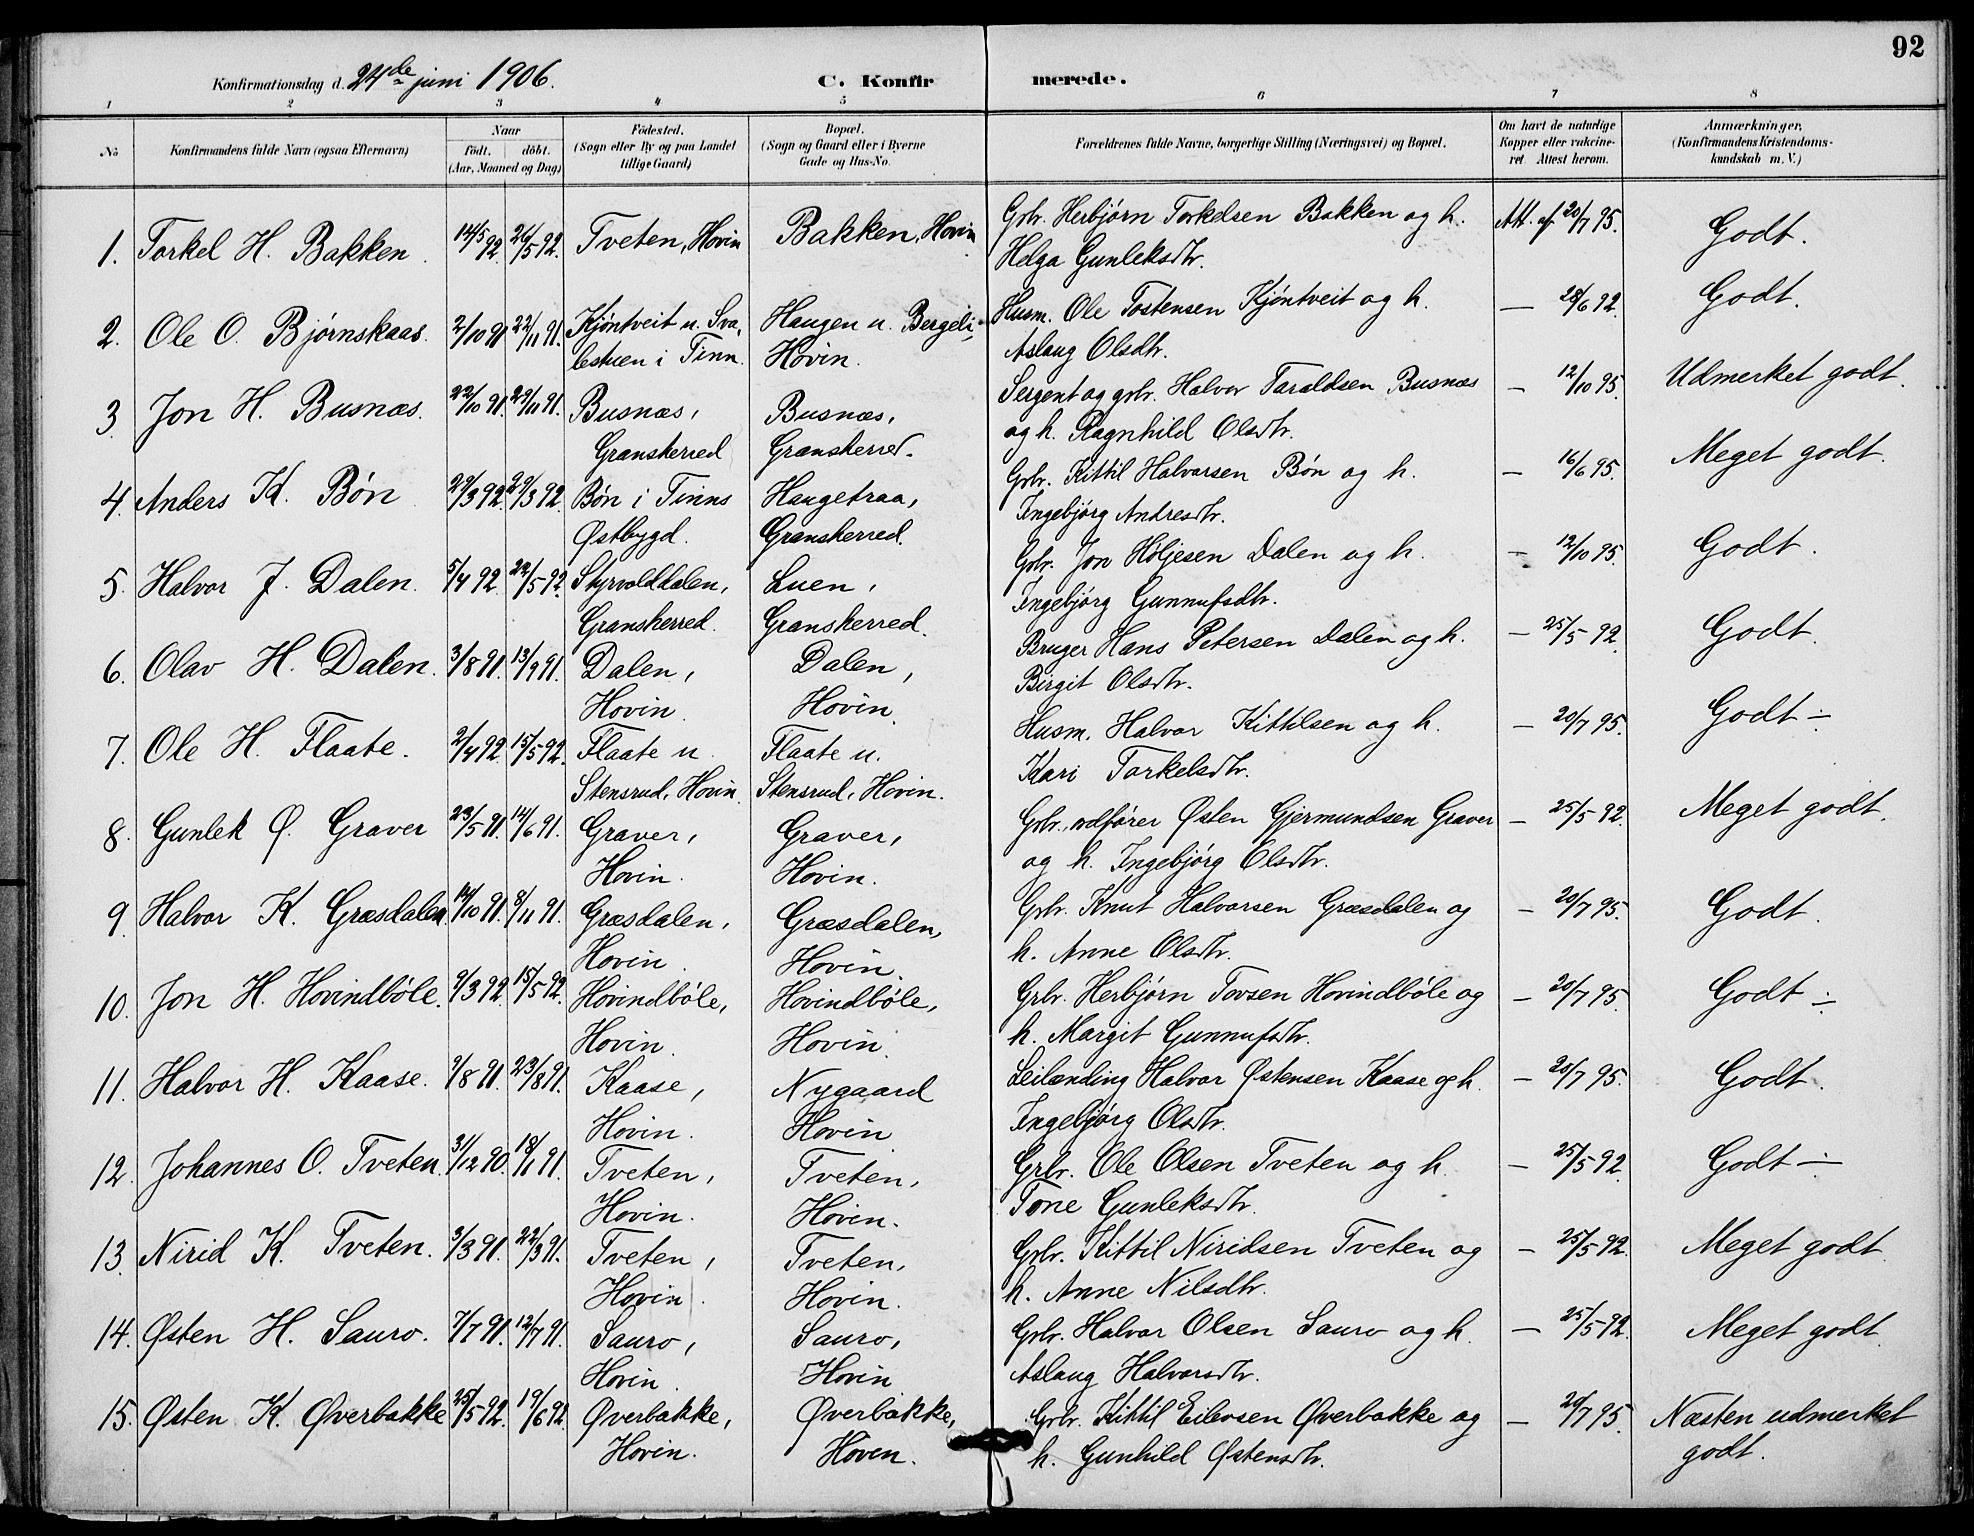 92
Konfirmationsdag d. 24de juni 1906. C. Konfirmerede.
1 2 3 4 5 6 7 8
No Konfirmandens fulde Navn (ogsaa Efternavn) Naar födt. döbt. (Aar, Maaned og Dag) Födested. (Sogn eller By og paa Landet tillige Gaard) Bopæl. (Sogn og Gaard eller i Byerne Gade og Hus-No. Forældrenes fulde Navne, borgerlige Stilling (Næringsvei) og Bopæl. Om havt de naturlige Kopper eller vakcineret. Attest herom. Anmærkninger, (Konfirmandens Kristendomskundskab m. V.)
1. Torkel H. Bakken. 14/5 92. 26/5 92. Tveten, Hovin Bakken, Hovin Grbr. Herbjørn Torkelsen Bakken og h. Att. af 20/7 95. Godt.
Helga Gunleksdtr.
2. Ole O. Bjørnskaas. 2/10 91 22/11 91. Kjøntveit u. Sva- Haugen u. Bergeli, Husm. Ole Tostensen Kjøntveit og h. — 28/6 92. Godt.
lestuen i Tinn. Hovin. Aslaug Olsdtr.
3. Jon H. Busnæs. 22/10 91. 29/11 91. Busnæs, Busnæs, Sergent og grbr. Halvor Taraldsen Busnæs — 12/10 95. Udmerket godt.
Gransherred Gransherred. og h. Ragnhild Olsdtr.
4. Anders K. Bøn 29/3 92 Bøn i Tinns Haugetraa, Grbr. Kittil Halvorsen Bøn og h. — 16/6 95. Meget godt.
Østbygd. Gransherred. Ingebjørg Andresdtr.
5. Halvor J. Dalen. 5/4 92. 22/5 92. Styrvolddalen, Luen, Grbr. Jon Høljesen Dalen og h. — 12/10 95. Godt.
Gransherred. Gransherred. Ingebjørg Gunnufsdtr.
6. Olav H. Dalen. 3/8 91. 13/9 91. Dalen, Dalen, Bruger Hans Petersen Dalen og h. — 25/5 92. Godt.
Hovin. Hovin. Birgit Olsdtr.
7. Ole H. Flaate. 2/4 92. 15/5 92. Flaate u. Flaate u. Husm. Halvor Kittilsen og h. — 20/7 95. Godt ÷
Stensrud, Hovin. Stensrud, Hovin. Kari Torkelsdtr.
8. Gunlek Ø. Graver 23/5 91. 14/6 91. Graver, Graver, Grbr., Østen Gjermundsen Graver — 25/5 92. Meget godt.
Hovin. Hovin. og h. Ingebjørg Olsdtr.
9. Halvor K. Græsdalen. 14/10 91. 8/11 91. Græsdalen, Græsdalen, Grbr. Knut Halvorsen Græsdalen og — 20/7 95. Godt.
Hovin. Hovin. h. Anne Olsdtr.
10. Jon H. Hovindbøle. 9/3 92. 15/5 92. Hovindbøle, Hovindbøle, Grbr. Herbjørn Tovsen Hovindbøle og — 20/7 95. Godt ÷
Hovin. Hovin. h. Margit Gunnufsdtr.
11. Halvor H. Kaase. 23/8 91. Kaase, Nygaard Leilænding Halvor Østensen Kaase og h. — 20/7 95. Godt.
Hovin. Hovin Ingebjørg Olsdtr.
12. Johannes O. Tveten. 31/12 90. 18/1 91. Tveten, Tveten, Grbr. Ole Olsen Tveten og h. — 25/5 92. Godt ÷
Hovin. Hovin. Tone Gunleksdtr.
13. Nirid K. Tveten. 3/3 91. 22/3 91. Tveten, Tveten, Grbr. Kittil Niridsen Tveten og — 25/5 92. Meget godt.
Hovin. Hovin. h. Anne Nilsdtr.
14. Østen H. Sauro. 7/7 91. 12/7 91. Sauro, Sauro, Grbr. Halvor Olsen Sauro og h. — 25/5 92. Meget godt
Hovin. Hovin Aslaug Halvorsdtr.
15. Østen K. Øverbakke 25/5 92. 19/6 92 Øverbakke, Øverbakke, Grbr. Kittil Eilevsen Øverbakke og — 20/7 95. Næsten udmerket
Hovin. Hovin. h. Gunhild Østensdtr. godt.